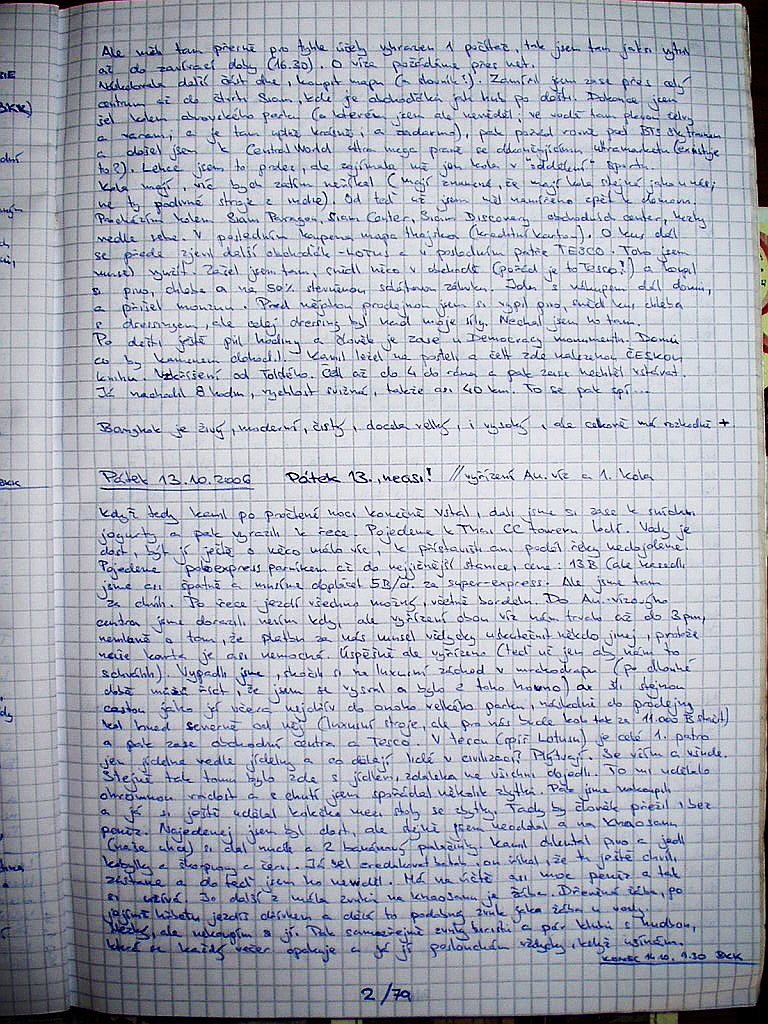 Ale měli tam přesně pro tyhle účely vyhrazen 1 počítač, tak jsem tam jaksi vytrval
až do zavírací doby (16.30). O víza požádáme přes net.
další část dne, koupit mapu (a slovník!). Zamířil jsem zase přes celý
centrum až do čtvrti Siam, kde je obchoďáků jak hub po dešti. Dokonce jsem
šel kolem obrovského parku (o kterém jsem ale nevěděl, ve vodě tam plavou
a varani, a je tam úplně krásně, a zadarmo), pak pořád rovně pod BTS skytrainem
a došel jsem k Central World
to?). Lehce jsem to prolez, ale zajímala mě jen kola v "oddělení" sportu.
Kola mají, víc bych zatím neříkal (mají znamení, že mají kola stejné jako u nás
ne ty podivné stroje z Indie). Od teď už jsem měl namířeno zpět k domovu.
Procházím kolem Siam Paragon, Siam Center, Siam Discovery obchodních center, hezky
vedle sebe. V posledním koupena mapa thajska (kreditní kartou). O kus dál
se přede mnou zjeví další obchoďák - LOTUS a v posledním patře TESCO. Toho jsem
musel využít. Zašel jsem tam, snědl něco v obchodě (pořád je to Tesco!) a koupil
si pivo, chleba a na 50% slevněnou salátovou zálivku. Jdu s nákupem dál domů,
a přišel monzun. Před nějakou prodejnou jsem si vypil pivo, snědl kus chleba
s dressingem, ale celej dressing byl nad moje síly. Nechal jsem ho tam.
Po dešti ještě půl hodiny a člověk je zase u Democracy monumentu. Domů
co by kamenem dohodil. Kamil ležel na posteli a četl zde nalezenou ČESKOU
knihu. Vzkříšení od Tolstého. Četl až do 4 do rána a pak zase nechtěl vstávat.
Já nachodil 8 hodin, rychlost svižná, takže asi 40 km. To se pak spí...
Bangkok je živý, moderní, čistý, docela velký, i vysoký, ale celkově má rozhodně +
Pátek 13.10.2006 Pátek 13., neasi! // vyřízení Au. víz a 1. kola
Když tedy Kamil po pročtené noci konečně vstal, dali jsme si zase k snídani
jogurty a pak vyrazili k řece. Pojedeme k Thai CC toweru lodí. Vody je
dost, být jí ještě o něco málo víc, k přístavišti ani podél řeky nedojdeme.
Pojedeme expres parníkem až do nejjižnější stanice, cena: 13B (ale nasedli
jsme asi špatně a musíme doplácet 5B/os za super-express. Ale jsme tam
za chvíli. Po řece jezdí všechno možný, včetně bordelu. Do Au. vízového
centra jsme dorazili nevím kdy, ale vyřízení obou víz nám trvalo až do 3pm,
nemluvě o tom, že platbu za nás musel vždycky uskutečnit někdo jinej, protože
naše karta je asi nemocná. Úspěšně ale vyřízeno (teď už jen aby nám to
schválili). Vypadli jsme, skočili si na luxusní záchod v mrakodrapu (po dlouhé
době můžu říct, že jsem se vysral a bylo z toho hovno) a šli stejnou
cestou jako já včera nejdřív do onoho velkého parku, následně do prodejny
kol hned severně od něj (luxusní stroje, ale pro nás bude kolo tak za 11.000 B stačit)
a pak zase obchodní centra a Tesco. V Tescu (spíš Lotusu) je celé 1. patro
jen jídelna vedle jídelny a co dělají lidé v civilizaci? Plýtvají. Se vším a všude.
Stejně tak tomu bylo zde s jídlem, zdaleka ne všichni dojedli. To mi udělalo
ohromnou radost a s chutí jsem spořádal několik zbytků. Pak jsme nakoupili
a já si ještě udělal kolečko mezi stoly se zbytky. Tady by člověk přežil i bez
peněz. Najedenej jsem byl dost, ale stejně jsem neodolal a na Khaosanu
(naše ulice) si dal nudle a 2 banánový palačinky. Kamil chlemtal pivo a jedl
kobylky a škorpiony a červy. Já šel do hotelu, on říkal, že to ještě chvíli
zůstane a do teď jsem ho neviděl. Má na účtě asi moc peněz a tak
si užívá. Jo další z mála zvuků na khaosanu je žába. Dřevěná žába, po
jejímž hřbetu jezdíš dřívkem a dělá to podobný zvuk jako žába u vody.
Hezký, ale nekoupím si jí. Pak samozřejmě zvuky barů a pár klubů s hudbou,
která se každý večer opakuje a já jí poslouchám vždycky, když usínám.
KONEC 14.10. 9.30 BKK
2/79